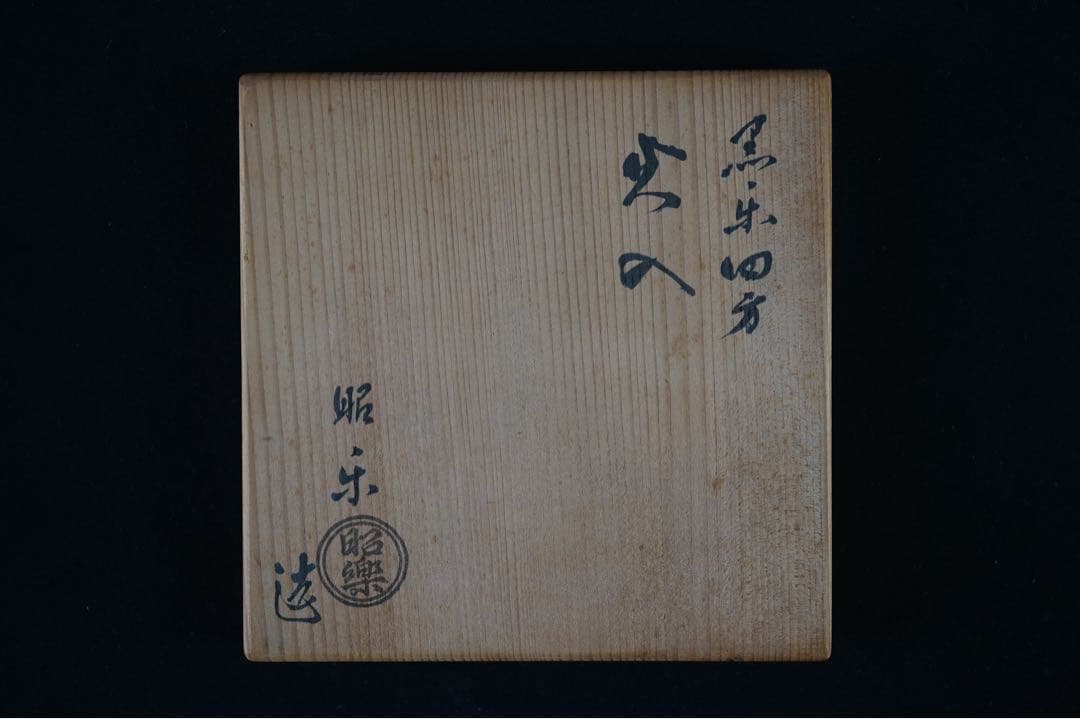 黒楽四方
炭入
昭楽
昭樂
造